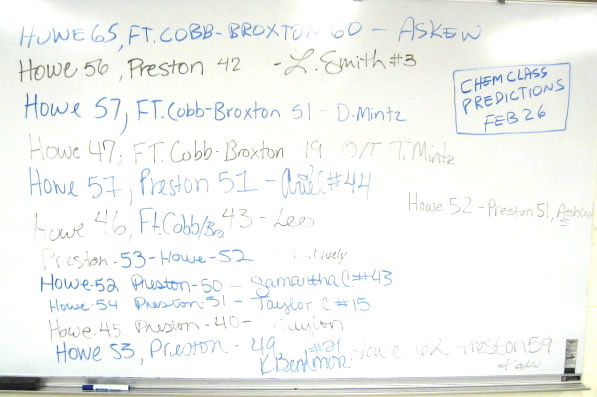 HOWE 65, FT. COBB-BROXTON 60 - ASKEW
Howe 56, Preston 42 - L. Smith #3
CHEM CLASS
PREDICTIONS
FEB 26
Howe 57, FT. Cobb-Broxton 51 - D. Mintz
Howe 47, FT. Cobb-Broxton 19 O/T T. Mintz
Howe 57, Preston 51 - Ariel #44
Howe 52 - Preston 51, Askew
Howe 46, Ft. Cobb/Bro 43 - Lee
Preston - 53 - Howe - 52 - Lively
Howe-52 Preston-50 - Samantha C #43
Howe-54 Preston-51 - Taylor C #15
Howe-45 Preston-40-
Howe 53, Preston - 49 #21
Howe 62 Preston 59